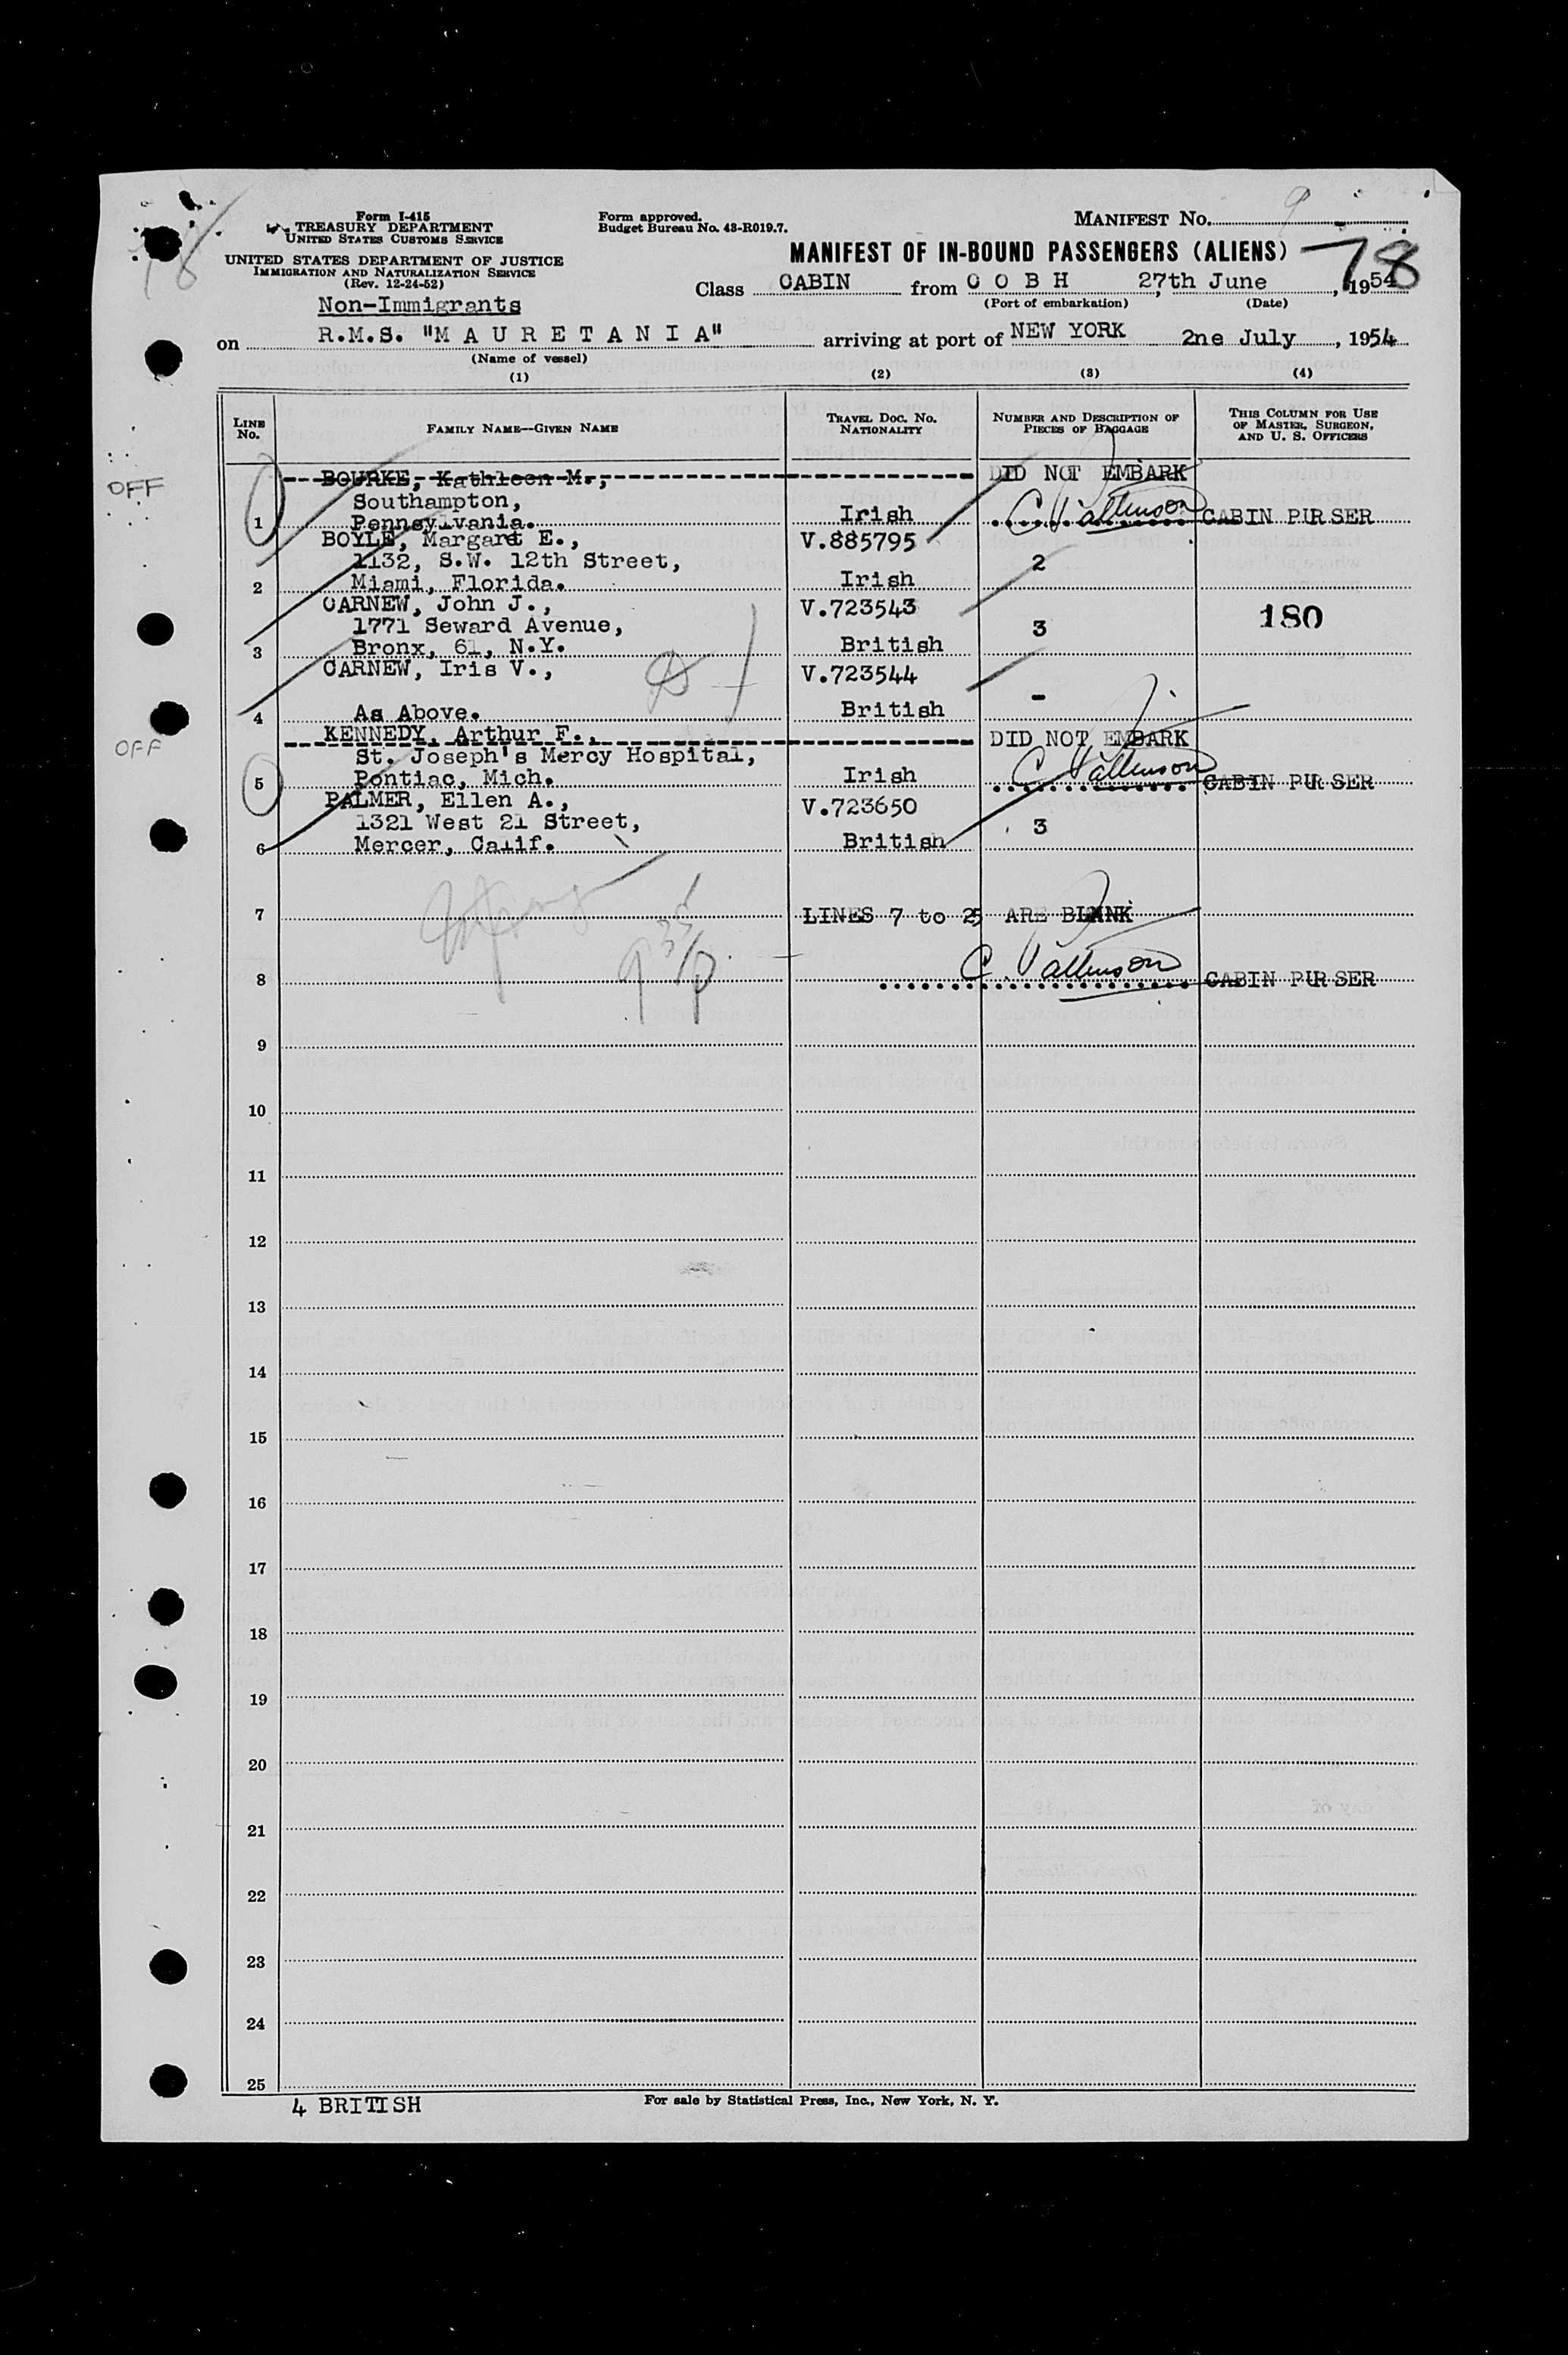 Form I-415
TREASURY DEPARTMENT
UNITED STATES CUSTOMS SERVICE
UNITED STATES DEPARTMENT OF JUSTICE
IMMIGRATION AND NATURALIZATION SERVICE
(Rev. 12-24-52)
Non-Immigrants
Form approved.
Budget Bureau No. 43-R019.7.
MANIFEST No. 9
78
MANIFEST OF IN-BOUND PASSENGERS (ALIENS)
78
Class CABIN from C O B H 27th June, 1954
(Port of embarkation) (Date)
on R.M.S. "M A U R E T A N I A" arriving at port of NEW YORK 2ne July, 1954
(Name of vessel)
(1) (2) (3) (4)
LINE No. FAMILY NAME—GIVEN NAME TRAVEL DOC. NO. NATIONALITY NUMBER AND DESCRIPTION OF PIECES OF BAGGAGE THIS COLUMN FOR USE OF MASTER, SURGEON, AND U. S. OFFICERS
OFF BOURKE, Kathleen M., DID NOT EMBARK
Southampton,
1 Pennsylvania. Irish CABIN PURSER
BOYLE, Margaret E., V.885795
1132, S.W. 12th Street, 2
2 Miami, Florida. Irish
CARNEW, John J., V.723543 180
1771 Seward Avenue, 3
3 Bronx, 61, N.Y. British
CARNEW, Iris V., V.723544
-
4 As Above. British
OFF KENNEDY, Arthur F., DID NOT EMBARK
St. Joseph's Mercy Hospital,
5 Pontiac, Mich. Irish CABIN PURSER
PALMER, Ellen A., V.723650
1321 West 21 Street, 3
6 Mercer, Calif. British
7 LINES 7 to 25 ARE BLANK
8 CABIN PURSER
9
10
11
12
13
14
15
16
17
18
19
20
21
22
23
24
25
4 BRITISH For sale by Statistical Press, Inc., New York, N. Y.